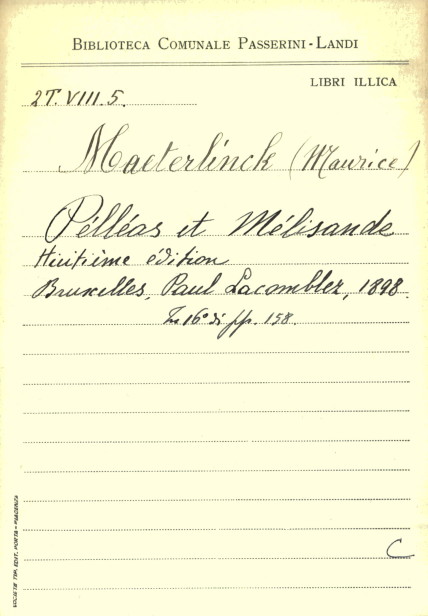 BIBLIOTECA COMUNALE PASSERINI-LANDI
LIBRI ILLICA
2T.VIII.5.
Maeterlinck (Maurice)
Pélléas et Mélisande
Huitième édition
Bruxelles, Paul Lacomblez, 1898.
In 16° di pp. 158.
C
SOCIETÀ TIP. EDIT. PORTA - PIACENZA